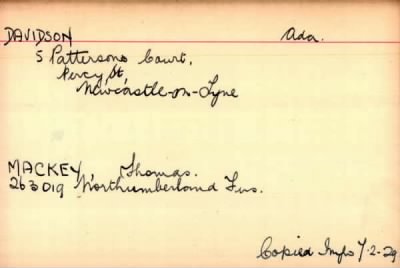 DAVIDSON Ada.
5 Pattersons Court,
Percy St,
Newcastle-on-Tyne
MACKEY, Thomas.
263019 Northumberland Fus.
Copied 7-2-29